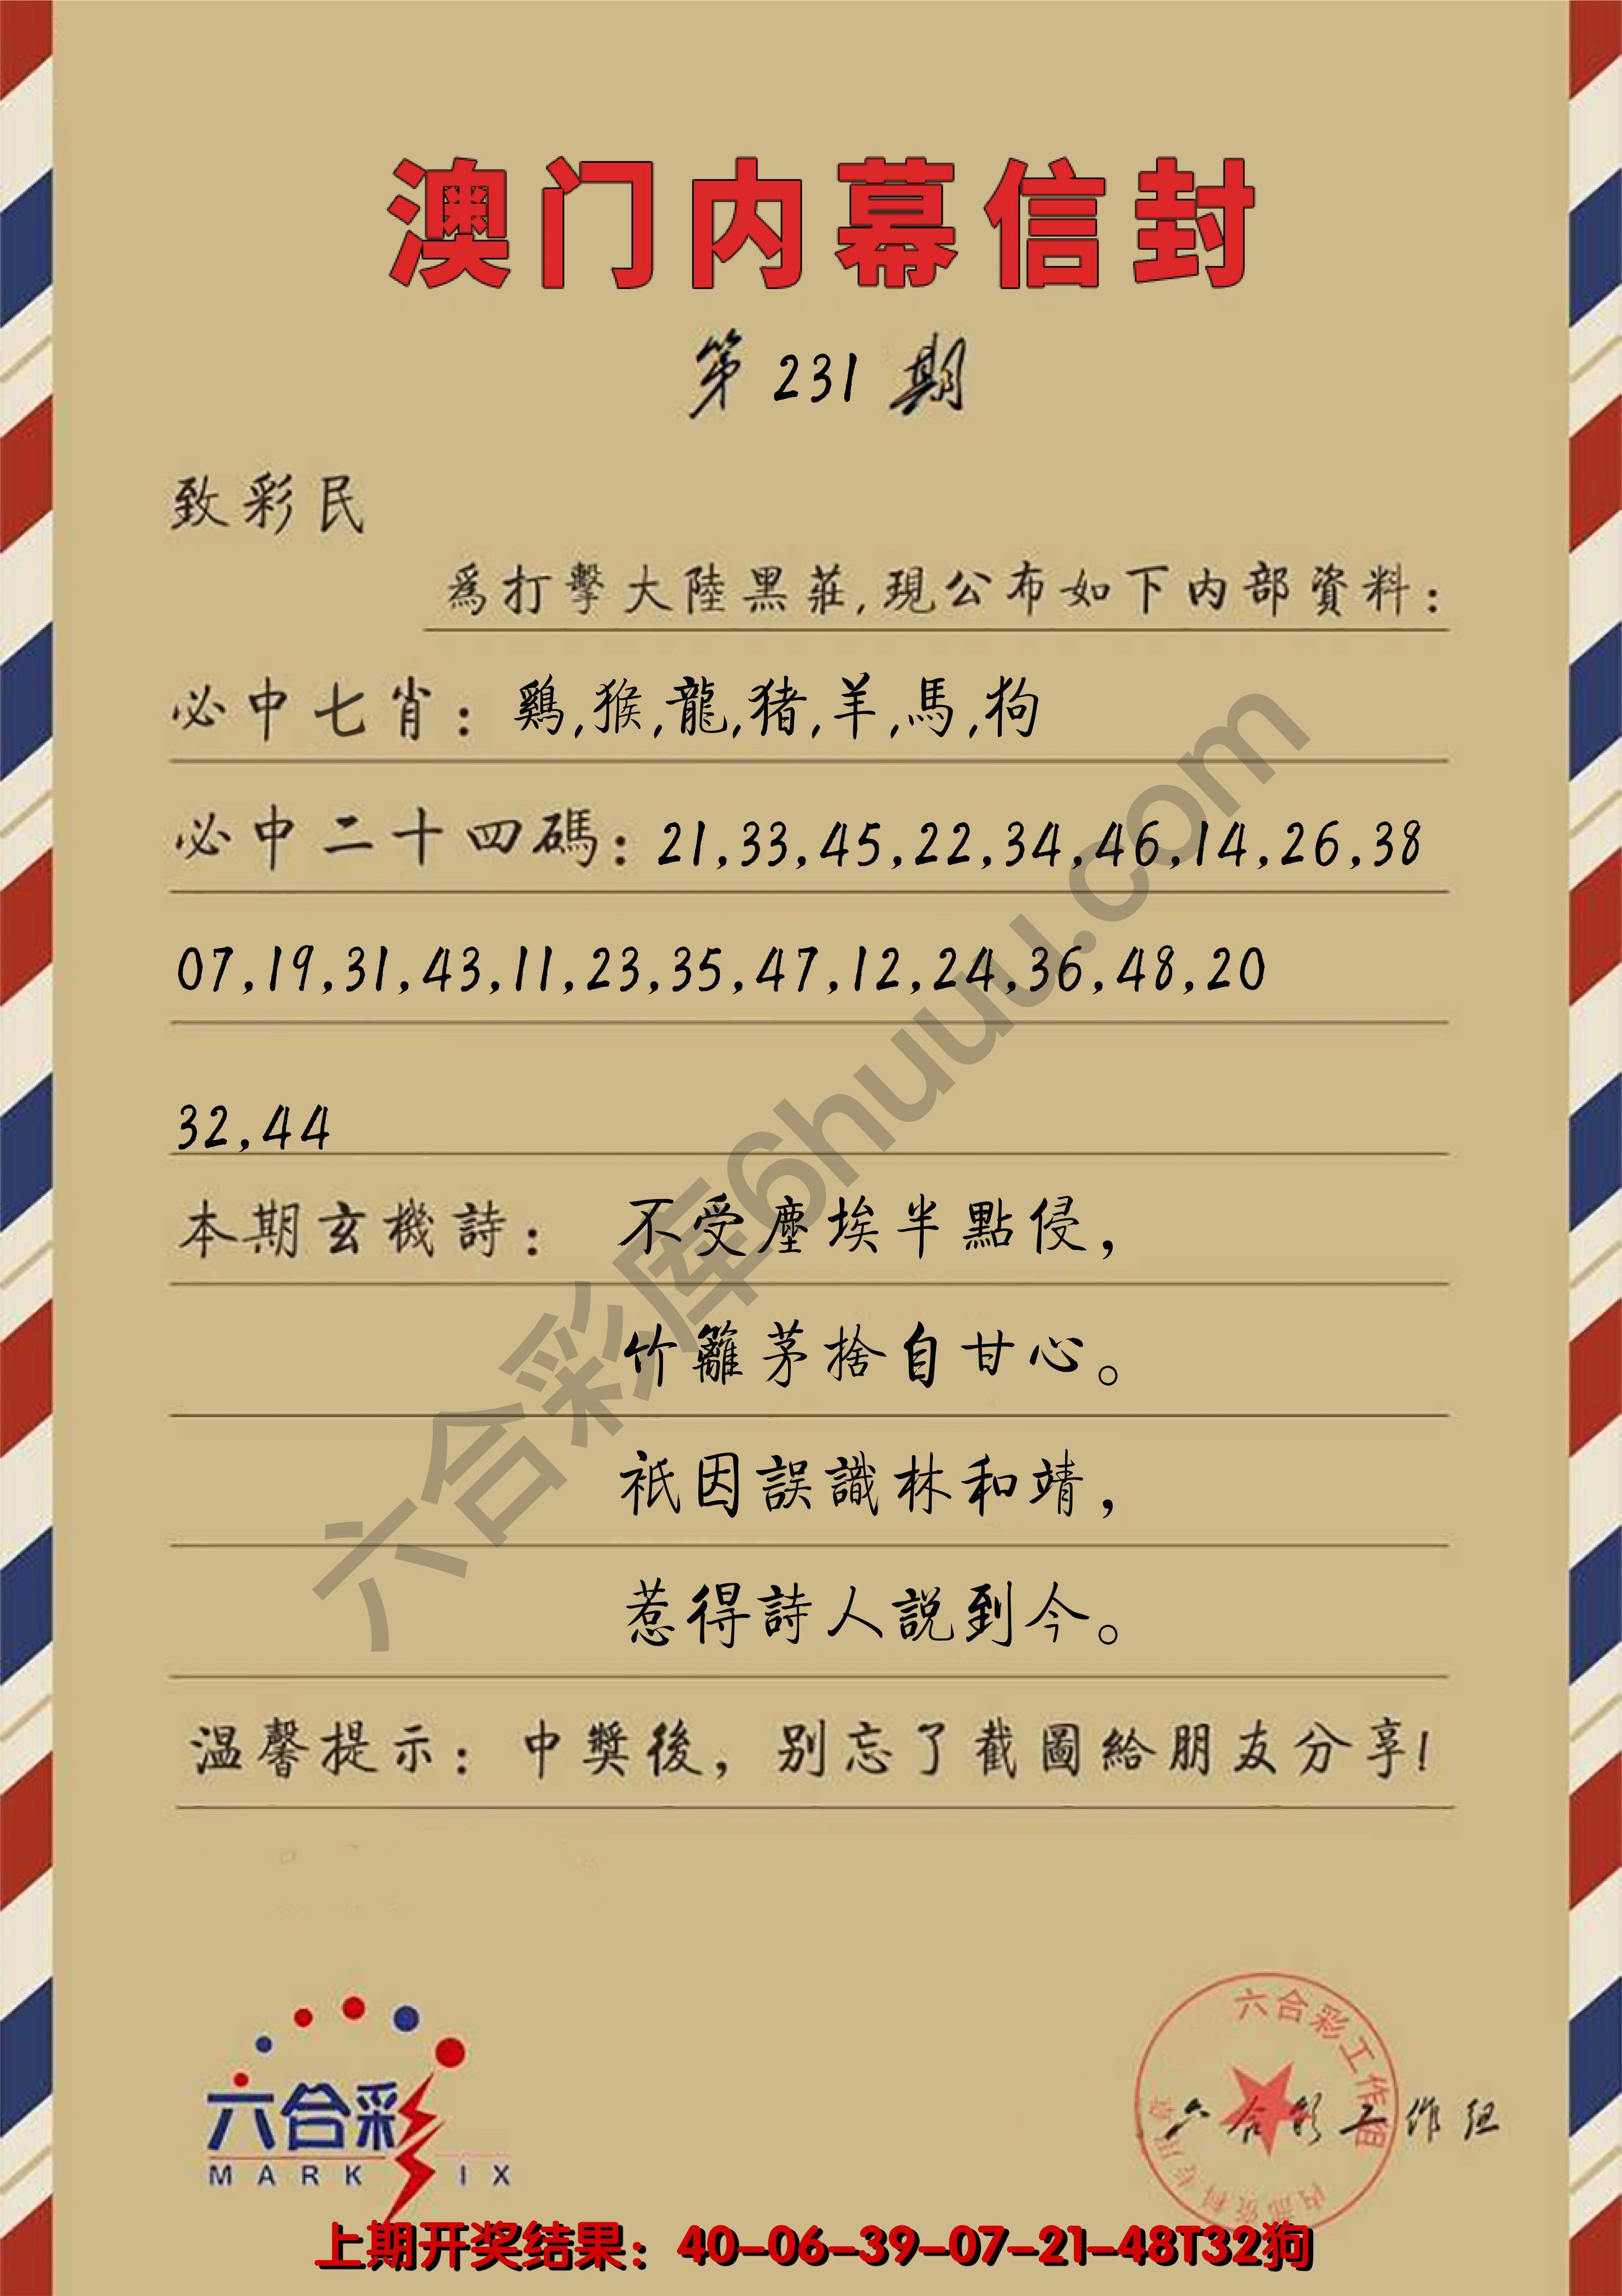 澳门内幕信封
第 231 期
致彩民
爲打擊大陸黑莊,現公布如下内部資料:
必中七肖: 鷄,猴,龍,猪,羊,馬,狗
必中二十四碼: 21,33,45,22,34,46,14,26,38
07,19,31,43,11,23,35,47,12,24,36,48,20
32,44
本期玄機詩: 不受塵埃半點侵,
竹籬茅捨自甘心。
祇因誤識林和靖,
惹得詩人説到今。
温馨提示: 中獎後, 别忘了截圖給朋友分享!
六合彩库6huuu.com
六合彩
MARK IX
六合彩工作组
六合彩工作组
上期开奖结果: 40-06-39-07-21-48T32狗